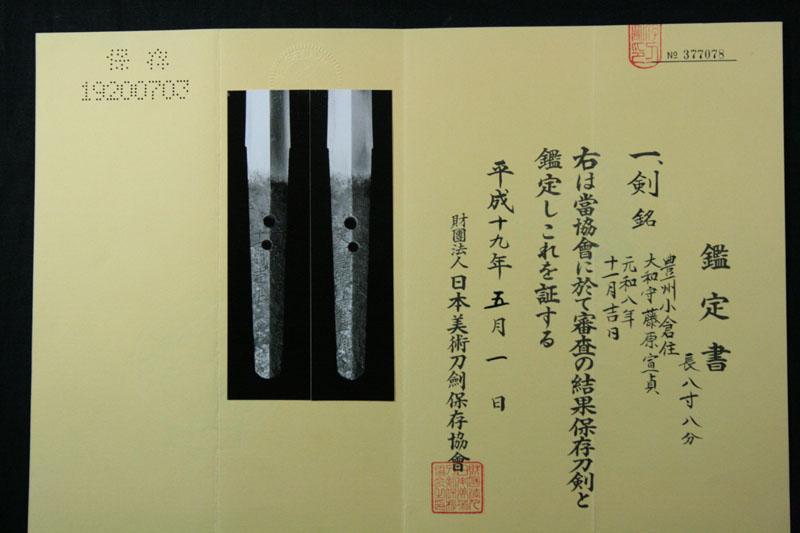 保存
19200703
№ 377078
鑑定書
一、剣 銘
豊州小倉住
大和守藤原宣貞
元和八年
十一月吉日
長八寸八分
右は當協會に於て審査の結果保存刀剣と
鑑定しこれを証する
平成十九年五月一日
財團法人日本美術刀劍保存協會